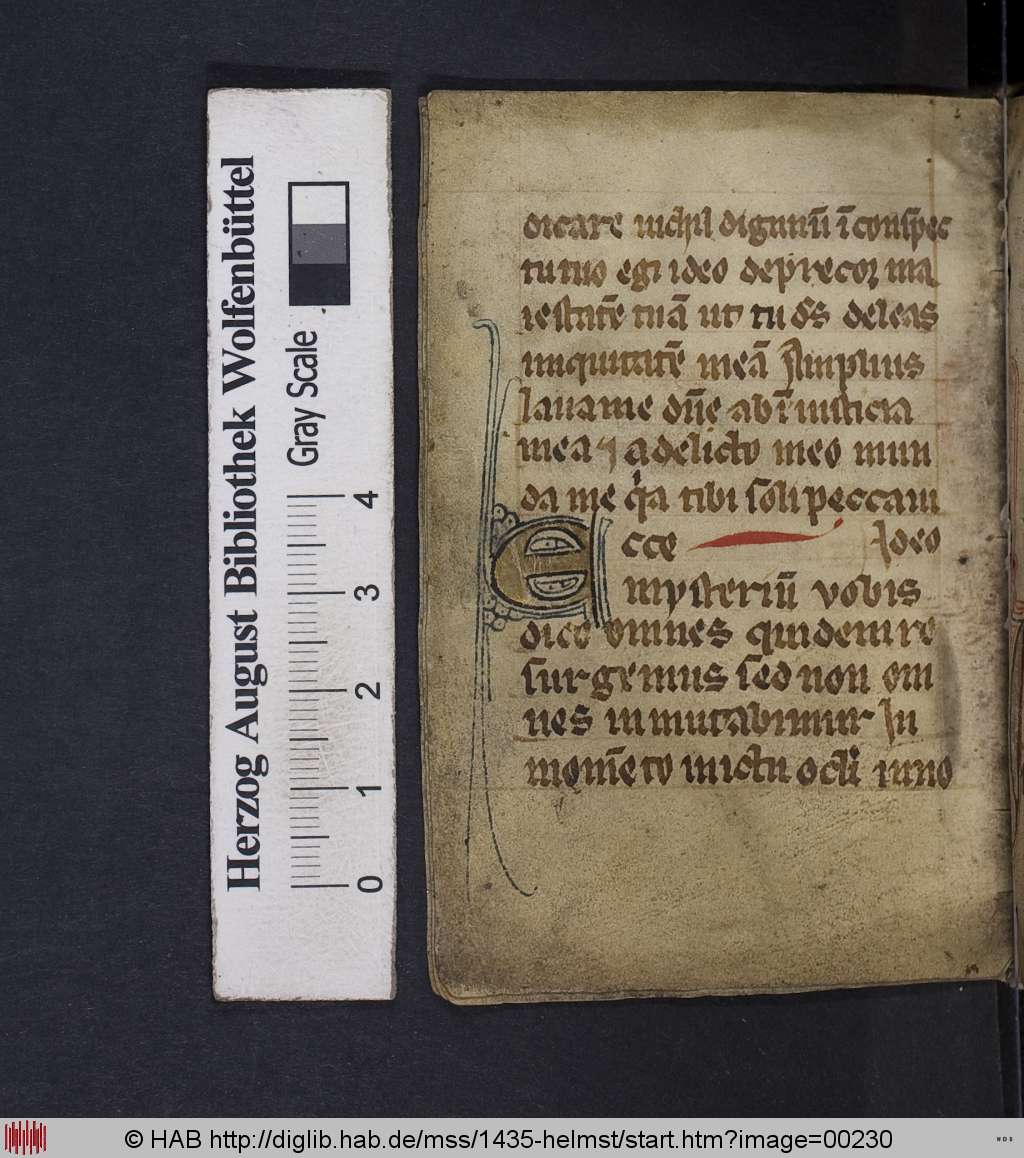 Herzog August Bibliothek Wolfenbüttel
Gray Scale
0 1 2 3 4
dicare nichil dignum̄ ī conspec
tu tuo egi ideo deprecoꝛ ma
iestatē tuā ut tu ds̄ deleas
iniquitatē meā Amplius
laua me dn̄e ab īiusticia
mea ⁊ a delicto meo mun
da me qͥa tibi soli peccaui
Ecce Adeo
mysteriū vobis
dico omnes quidem re
surgemus sed non om
nes inmutabimur In
momēto in ictu ocĺi in no
© HAB http://diglib.hab.de/mss/1435-helmst/start.htm?image=00230